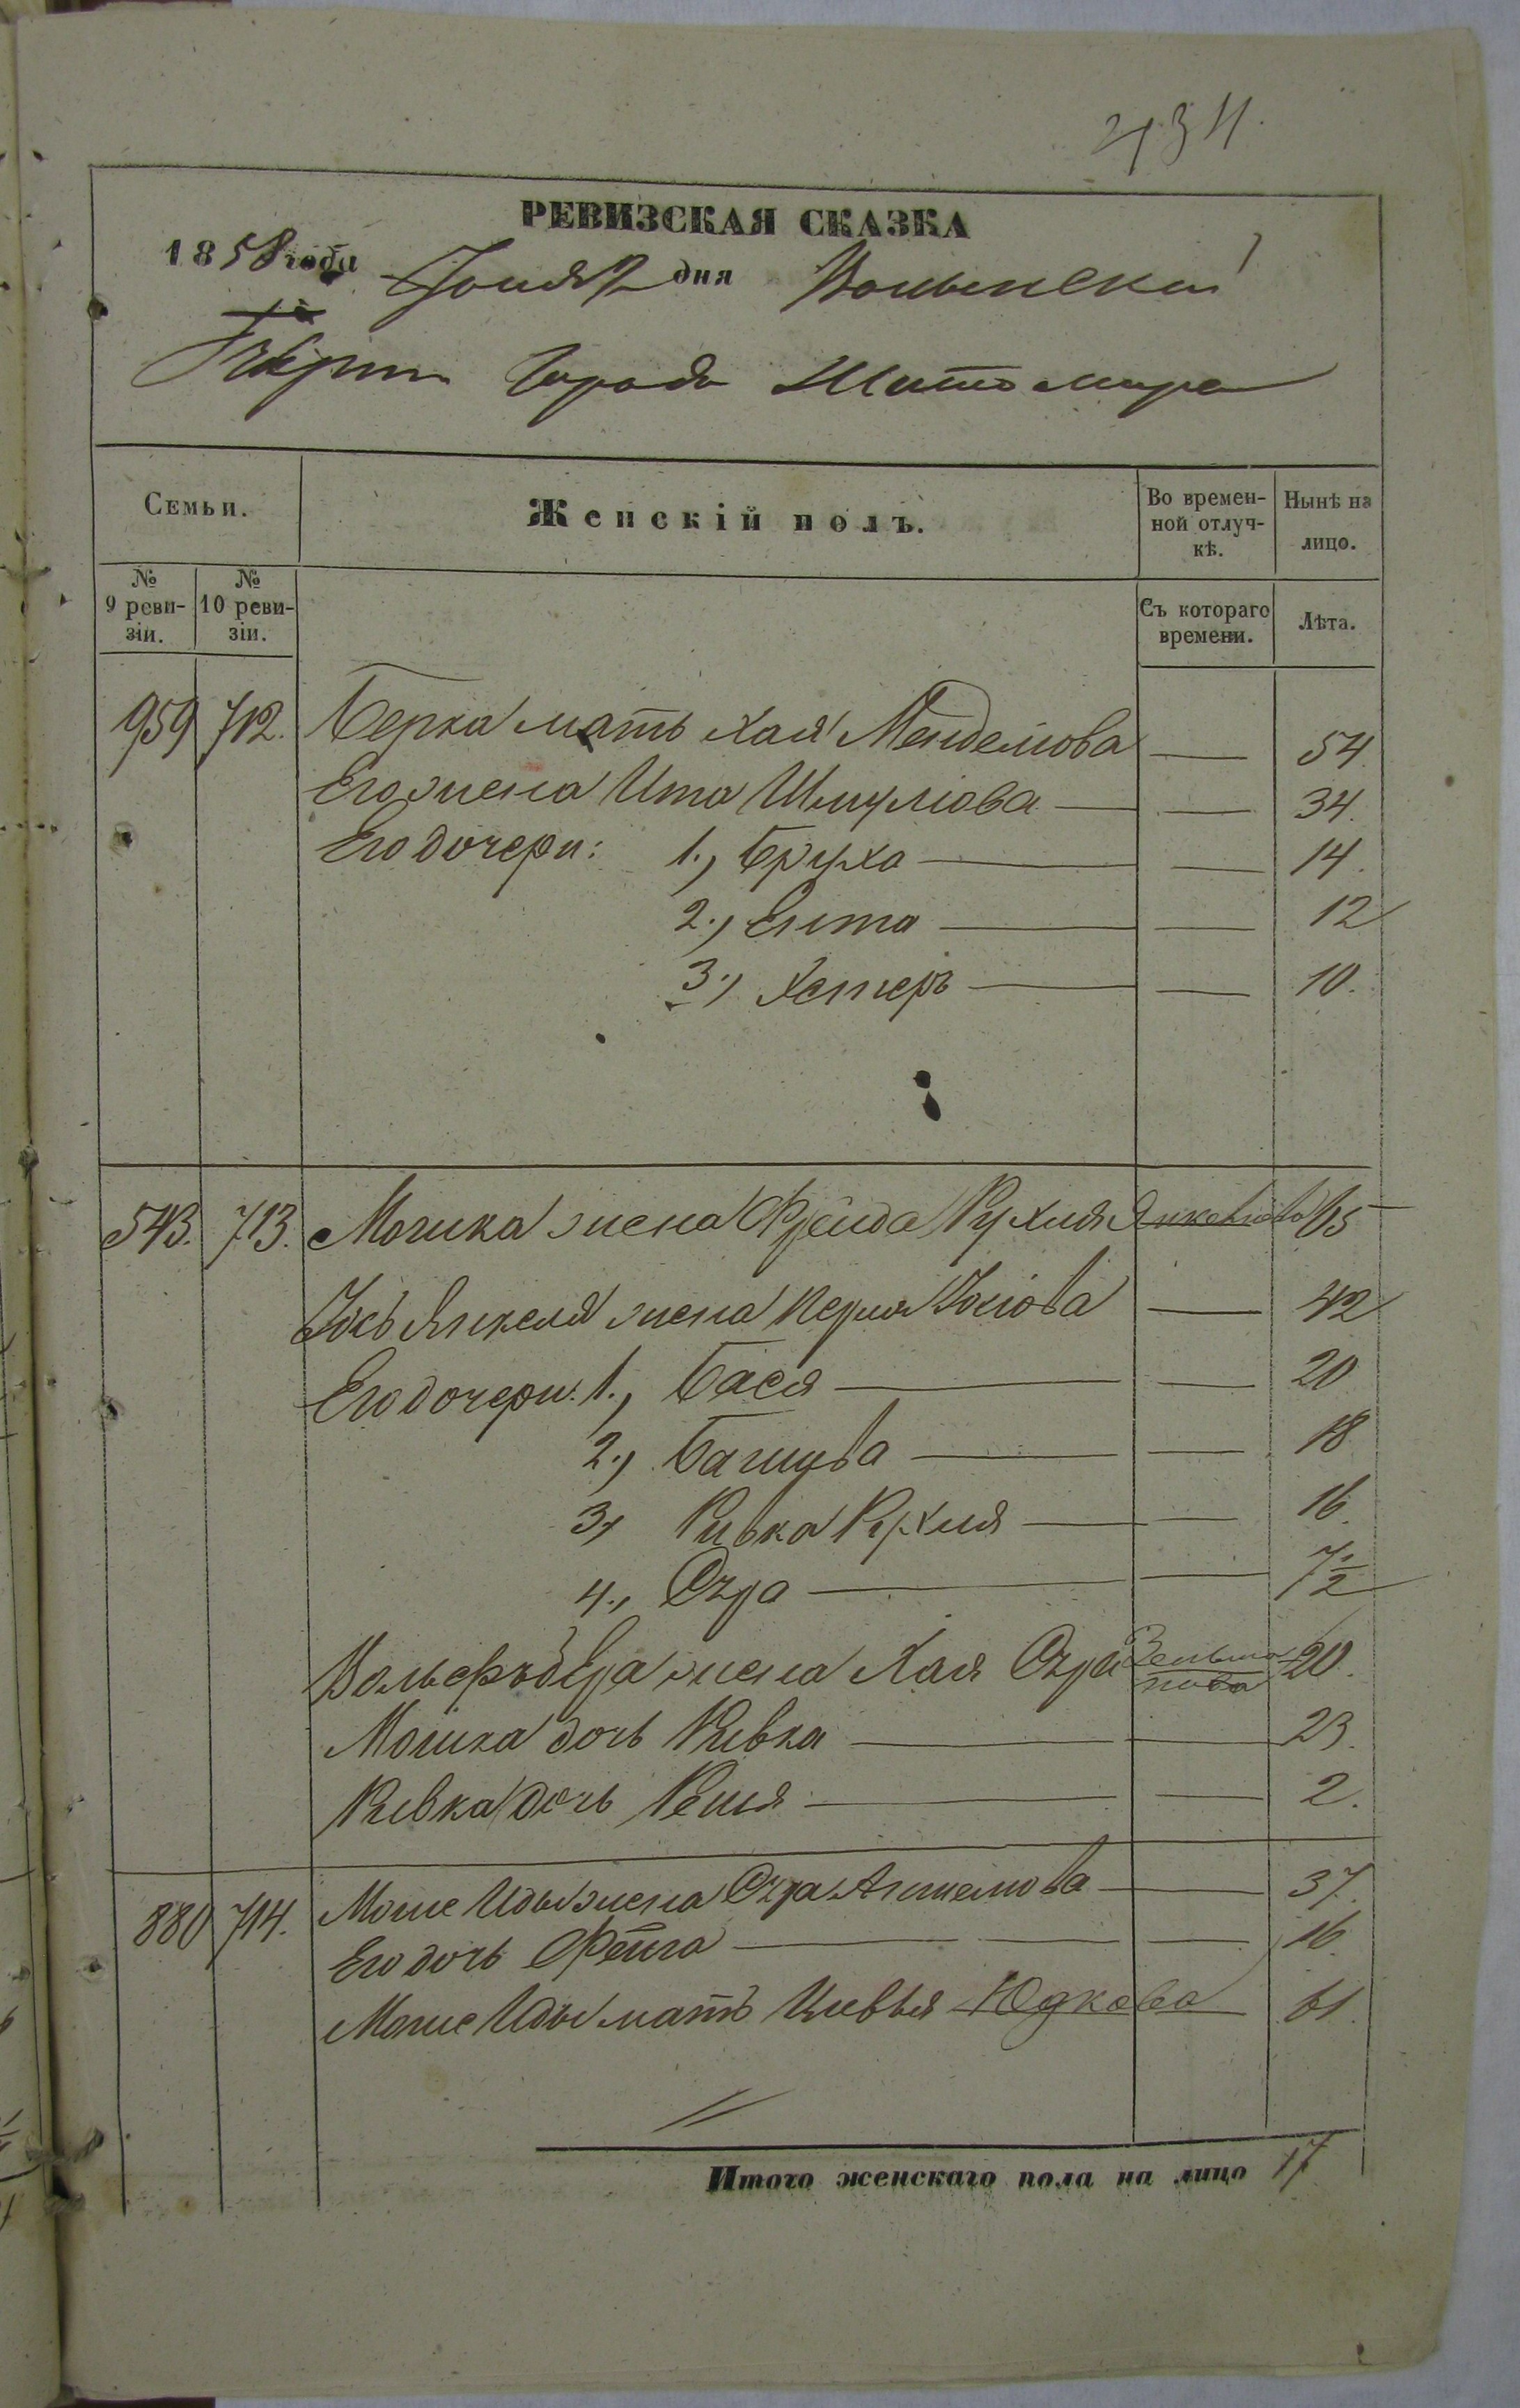 434.
РЕВИЗСКАЯ СКАЗКА
1858 года Іюня 2 дня Волынской
Губерніи Города Житомира
Семьи.
Женскій полъ.
Во времен-
ной отлуч-
кѣ.
Нынѣ на
лицо.
№
9 реви-
зіи.
№
10 реви-
зіи.
Съ котораго
времени.
Лѣта.
959 712. Берка мать Хая Менделіова — 54.
Его жена Ита Шмуліова — 34.
Его дочери: 1., Бруха — 14.
2., Ента — 12
3., Хетеръ — 10.
543. 713. Мошка жена Фрейда Рухля Янкеліова 65
Іось Янкеля жена Перля Іосіова — 42
Его дочери: 1., Бася — 20
2., Батшева — 18
3., Ривка Рухля — 16.
4., Сура — 7 1/2
Вольефъ Бера жена Хая Сура Зельма
нова 20.
Мошка дочь Ривка — 23.
Ривка дочь Рейзя — 2.
880 714. Моше Иды жена Сура Аншелиова — 37.
Его дочь Фейга — 16.
Моше Иды мать Цивья Юдкова 61.
Итого женскаго пола на лицо 17